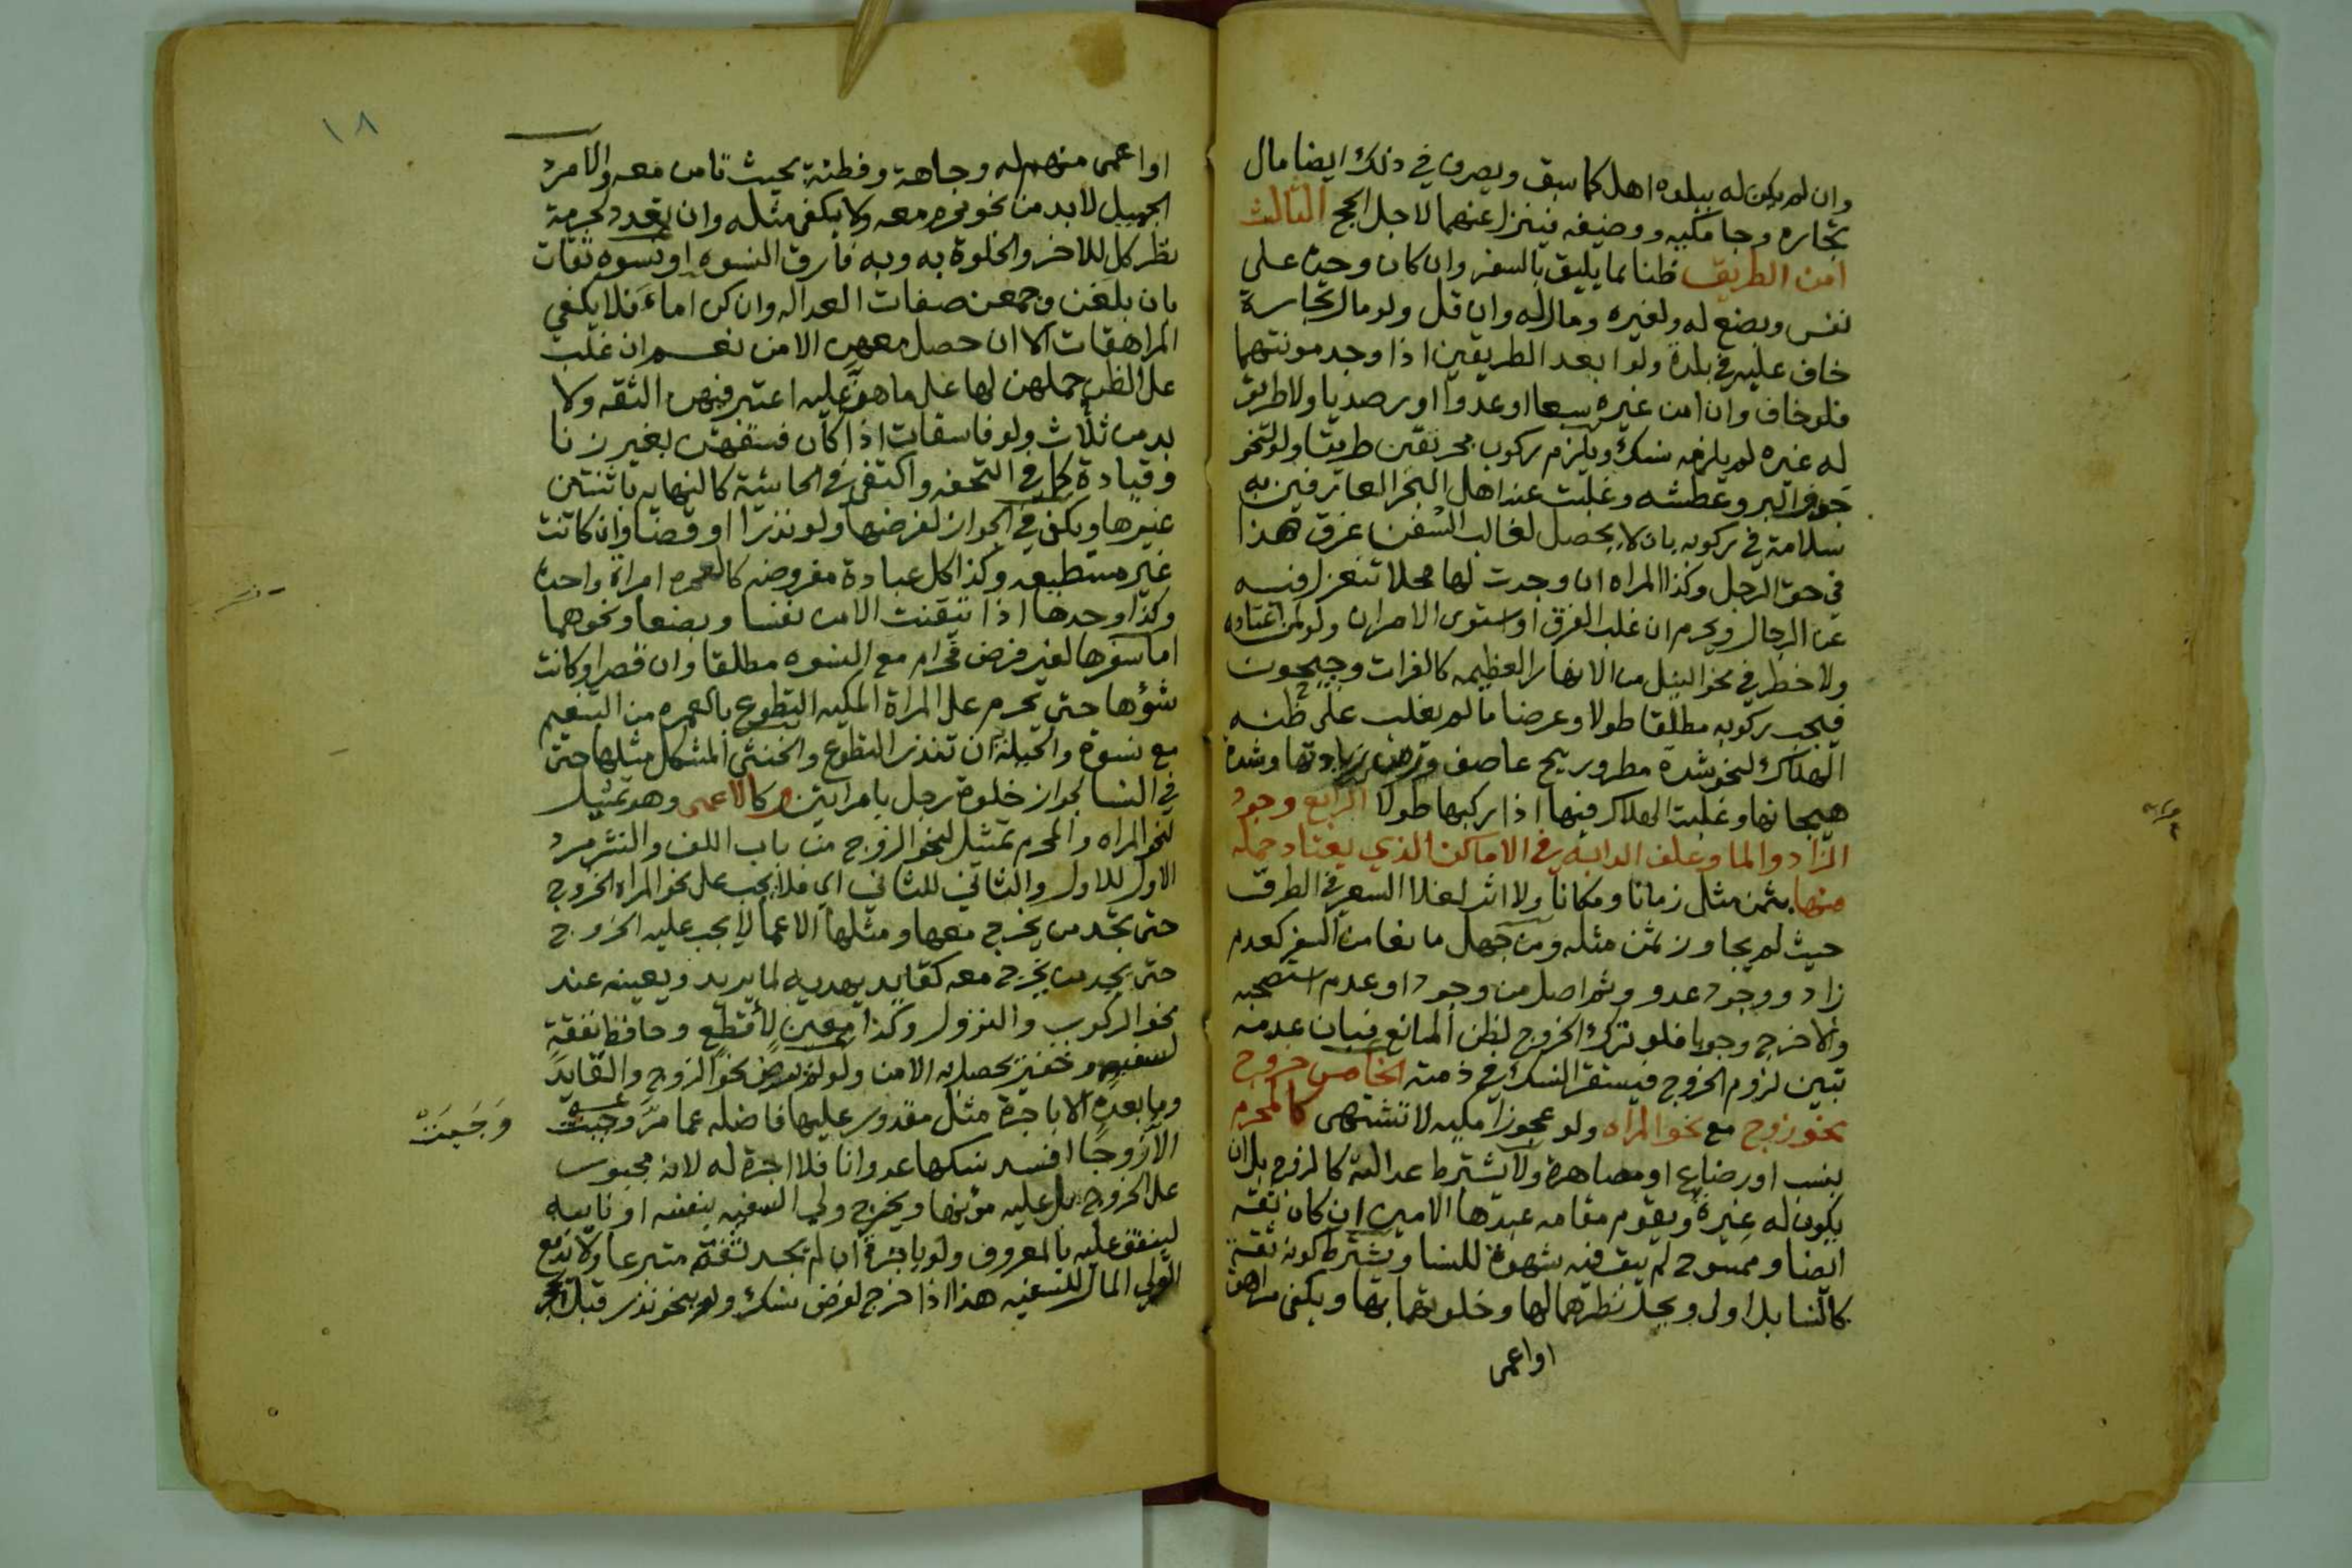 وان لم يكن له ببلده اهل كما سبق ويصرف في ذلك ايضا مال
تجاره وجامكيه ووضيفه فينزل عنهما لاجل الحج الثالث
امن الطريق ظنا بما يليق بالسفر وان كان وحده على
نفس وبضع له ولغيره ومال له وان قل ولو مال تجارة
خاف عليه في بلده ولو ابعد الطريقين اذا وجد مونتهما
فلو خاف وان امن غيره سبعا او عدوا او رصديا ولا طريق
له غيره لم يلزمه نسك ويلزم ركوب بحر تعين طريقا ولو لنحو
خوف البر وعطشه وغلبت عند اهل البحر العارفين به
سلامة في ركوبه بان لا يحصل لغالب السفن غرق هذا
في حق الرجل وكذا المراه ان وجدت لها محلا تنعزل فيه
عن الرجال ويحرم ان غلب الغرق او استوى الامران ولو لمن اعتاده
ولا خطر في نحو النيل من الانهار العظيمه كالفرات وجيحون
فيجب ركوبه مطلقا طولا وعرضا ما لم يغلب على ظنه
الهلاك لنحو شدة مطر وريح عاصف وزمن زيادتها وشدة
هيجانها وغلبت الهلاك فيها اذا ركبها طولا الرابع وجود
الزاد والما وعلف الدابه في الاماكن الذي يعتاد حمله
منها بثمن مثل زمانا ومكانا ولا اثر لغلا السعر في الطرق
حيث لم يجاوز ثمن مثله ومن جهل مانعا من السفر كعدم
زاد ووجود عدو وثم اصل من وجود او عدم استصحبه
والا خرج وجوبا فلو ترك الخروج لظن المانع فبان عدمه
تبين لزوم الخروج فيستقر النسك في ذمته الخامس خروج
نحو زوج مع نحو المراه ولو عجوزا مكيه لا تشتهى كالمحرم
بنسب او رضاع او مصاهرة ولا يشترط عدالته كالزوج بل ان
يكون له غيرة ويقوم مقامه عبدها الامين ان كان ثقه
ايضا وممسوح لم يبق فيه شهوة للنسا ويشترط كونه ثقة
كالنسا بل اولى ويحل نظرهما لها وخلوتهما بها ويكفي مراهق
او اعمى
١٨
او اعمى منهم له وجاهة وفطنة بحيث تامن معه والامرد
الجميل لا بد من نحو محرم معه ولا يكفي مثله وان تعدد لحرمة
نظر كل للاخر والخلوة به وبه فارق النسوه او نسوه ثقات
بان بلغن وجمعن صفات العداله وان كن اماء فلا يكفي
المراهقات الا ان حصل معهن الامن نعم ان غلب
على الظن حملهن لها على ما هن عليه اعتبر فيهن الثقه ولا
بد من ثلاث ولو فاسقات اذا كان فسقهن بغير زنا
وقيادة كما في التحفه واكتفى في الحاشية كالنهايه باثنتين
غيرها ويكفي في الجواز لفرضها ولو نذرا او قضا وان كانت
غير مستطيعه وكذا كل عبادة مفروضه كالعمره امراة واحدة
وكذا وحدها اذا تيقنت الامن نفسا وبضعا ونحوهما
اما سفرها لغير فرض فحرام مع النسوه مطلقا وان قصر او كانت
شوها حتى يحرم على المراة المكيه التطوع بالعمره من التنعيم
مع نسوة والحيلة ان تنذر التطوع والخنثى المشكل مثلها حتى
في النسا لجواز خلوة رجل بامراتين وكالاعمى وهو تمثيل
لنحو المراه والمحرم تمثيل لنحو الزوج من باب اللف والنشر مرد
الاول للاول والثاني للثاني اي فلا يجب على نحو المراه الخروج
حتى تجد من يخرج معها ومثلها الاعما لا يجب عليه الخروج
حتى يجد من يخرج معه كقايد يهديه لما يريد ويعينه عند
نحو الركوب والنزول وكذا معين لاقطع وحافظ نفقة
لسفيه وخفير يحصل به الامن ولو لم يرض نحو الزوج والقايد
وما بعده الا باجرة مثل مقدور عليها فاضله عما مر وجبت
وَجَبَتْ
الا زوجا افسد نسكها عدوانا فلا اجرة له لانه محبوس
على الخروج بل عليه مؤنها ويخرج ولي السفيه بنفسه او نايبه
لينفق عليه بالمعروف ولو باجرة ان لم يجد ثقة متبرعا ولا يدفع
الولي المال للسفيه هذا اذا خرج لفرض نسك ولو بنحو نذر قبل الحجر